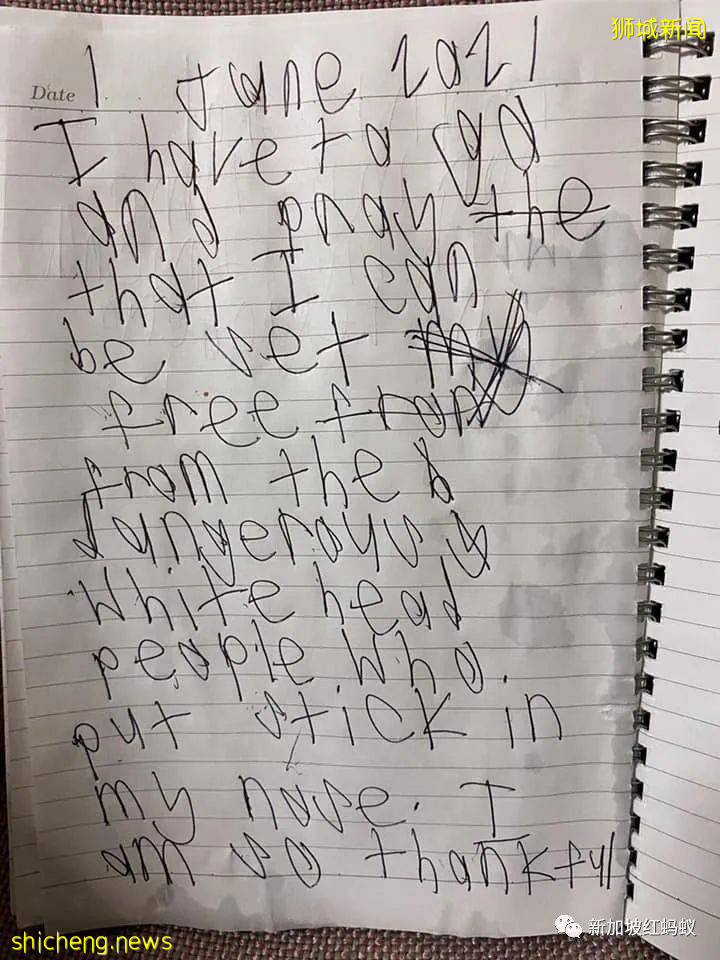 狮城新闻
Date 1 June 2021
I have to go
and pray the
that I can
be set my
free from
from the b
dangerouys y
white head
people who.
put stick in
my nose. I
am so thankful
新加坡红蚂蚁
shicheng.news